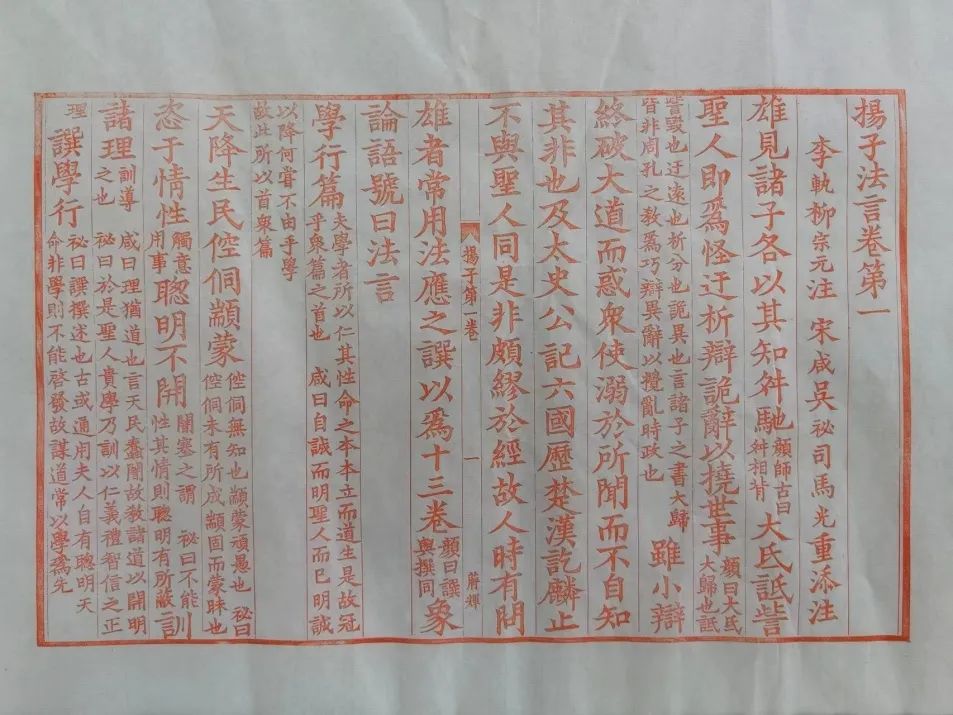 揚子法言卷第一
李軌柳宗元注 宋咸吳祕司馬光重添注
雄見諸子各以其知舛馳顏師古曰舛相背大氐詆訾
聖人即爲怪迂析辯詭辭以撓世事顏曰大氐大歸也詆
訾毀也迂遠也析分也詭異也言諸子之書大歸皆非周孔之教爲巧辯異辭以攪亂時政也雖小辯
終破大道而惑衆使溺於所聞而不自知
其非也及太史公記六國歷楚漢訖麟止
不與聖人同是非頗繆於經故人時有問
揚子第一卷 一 蔣輝
雄者常用法應之譔以爲十三卷顏曰譔與撰同象
論語號曰法言
學行篇夫學者所以仁其性命之本本立而道生是故冠乎衆篇之首也 咸曰自誠而明聖人而已明誠
以降何嘗不由乎學故此所以首衆篇
天降生民倥侗顓蒙倥侗無知也顓蒙頑愚也 祕曰倥侗未有所成顓固而蒙昧也
恣于情性觸意用事聰明不開闇塞之謂 祕曰不能性其情則聰明有所蔽訓
諸理訓導之也 咸曰理猶道也言天民蠢闇故教諸道以開明 祕曰於是聖人貴學乃訓以仁義禮智信之正
理 譔學行祕曰譔撰述也古或通用夫人自有聰明天命非學則不能啓發故謀道常以學爲先